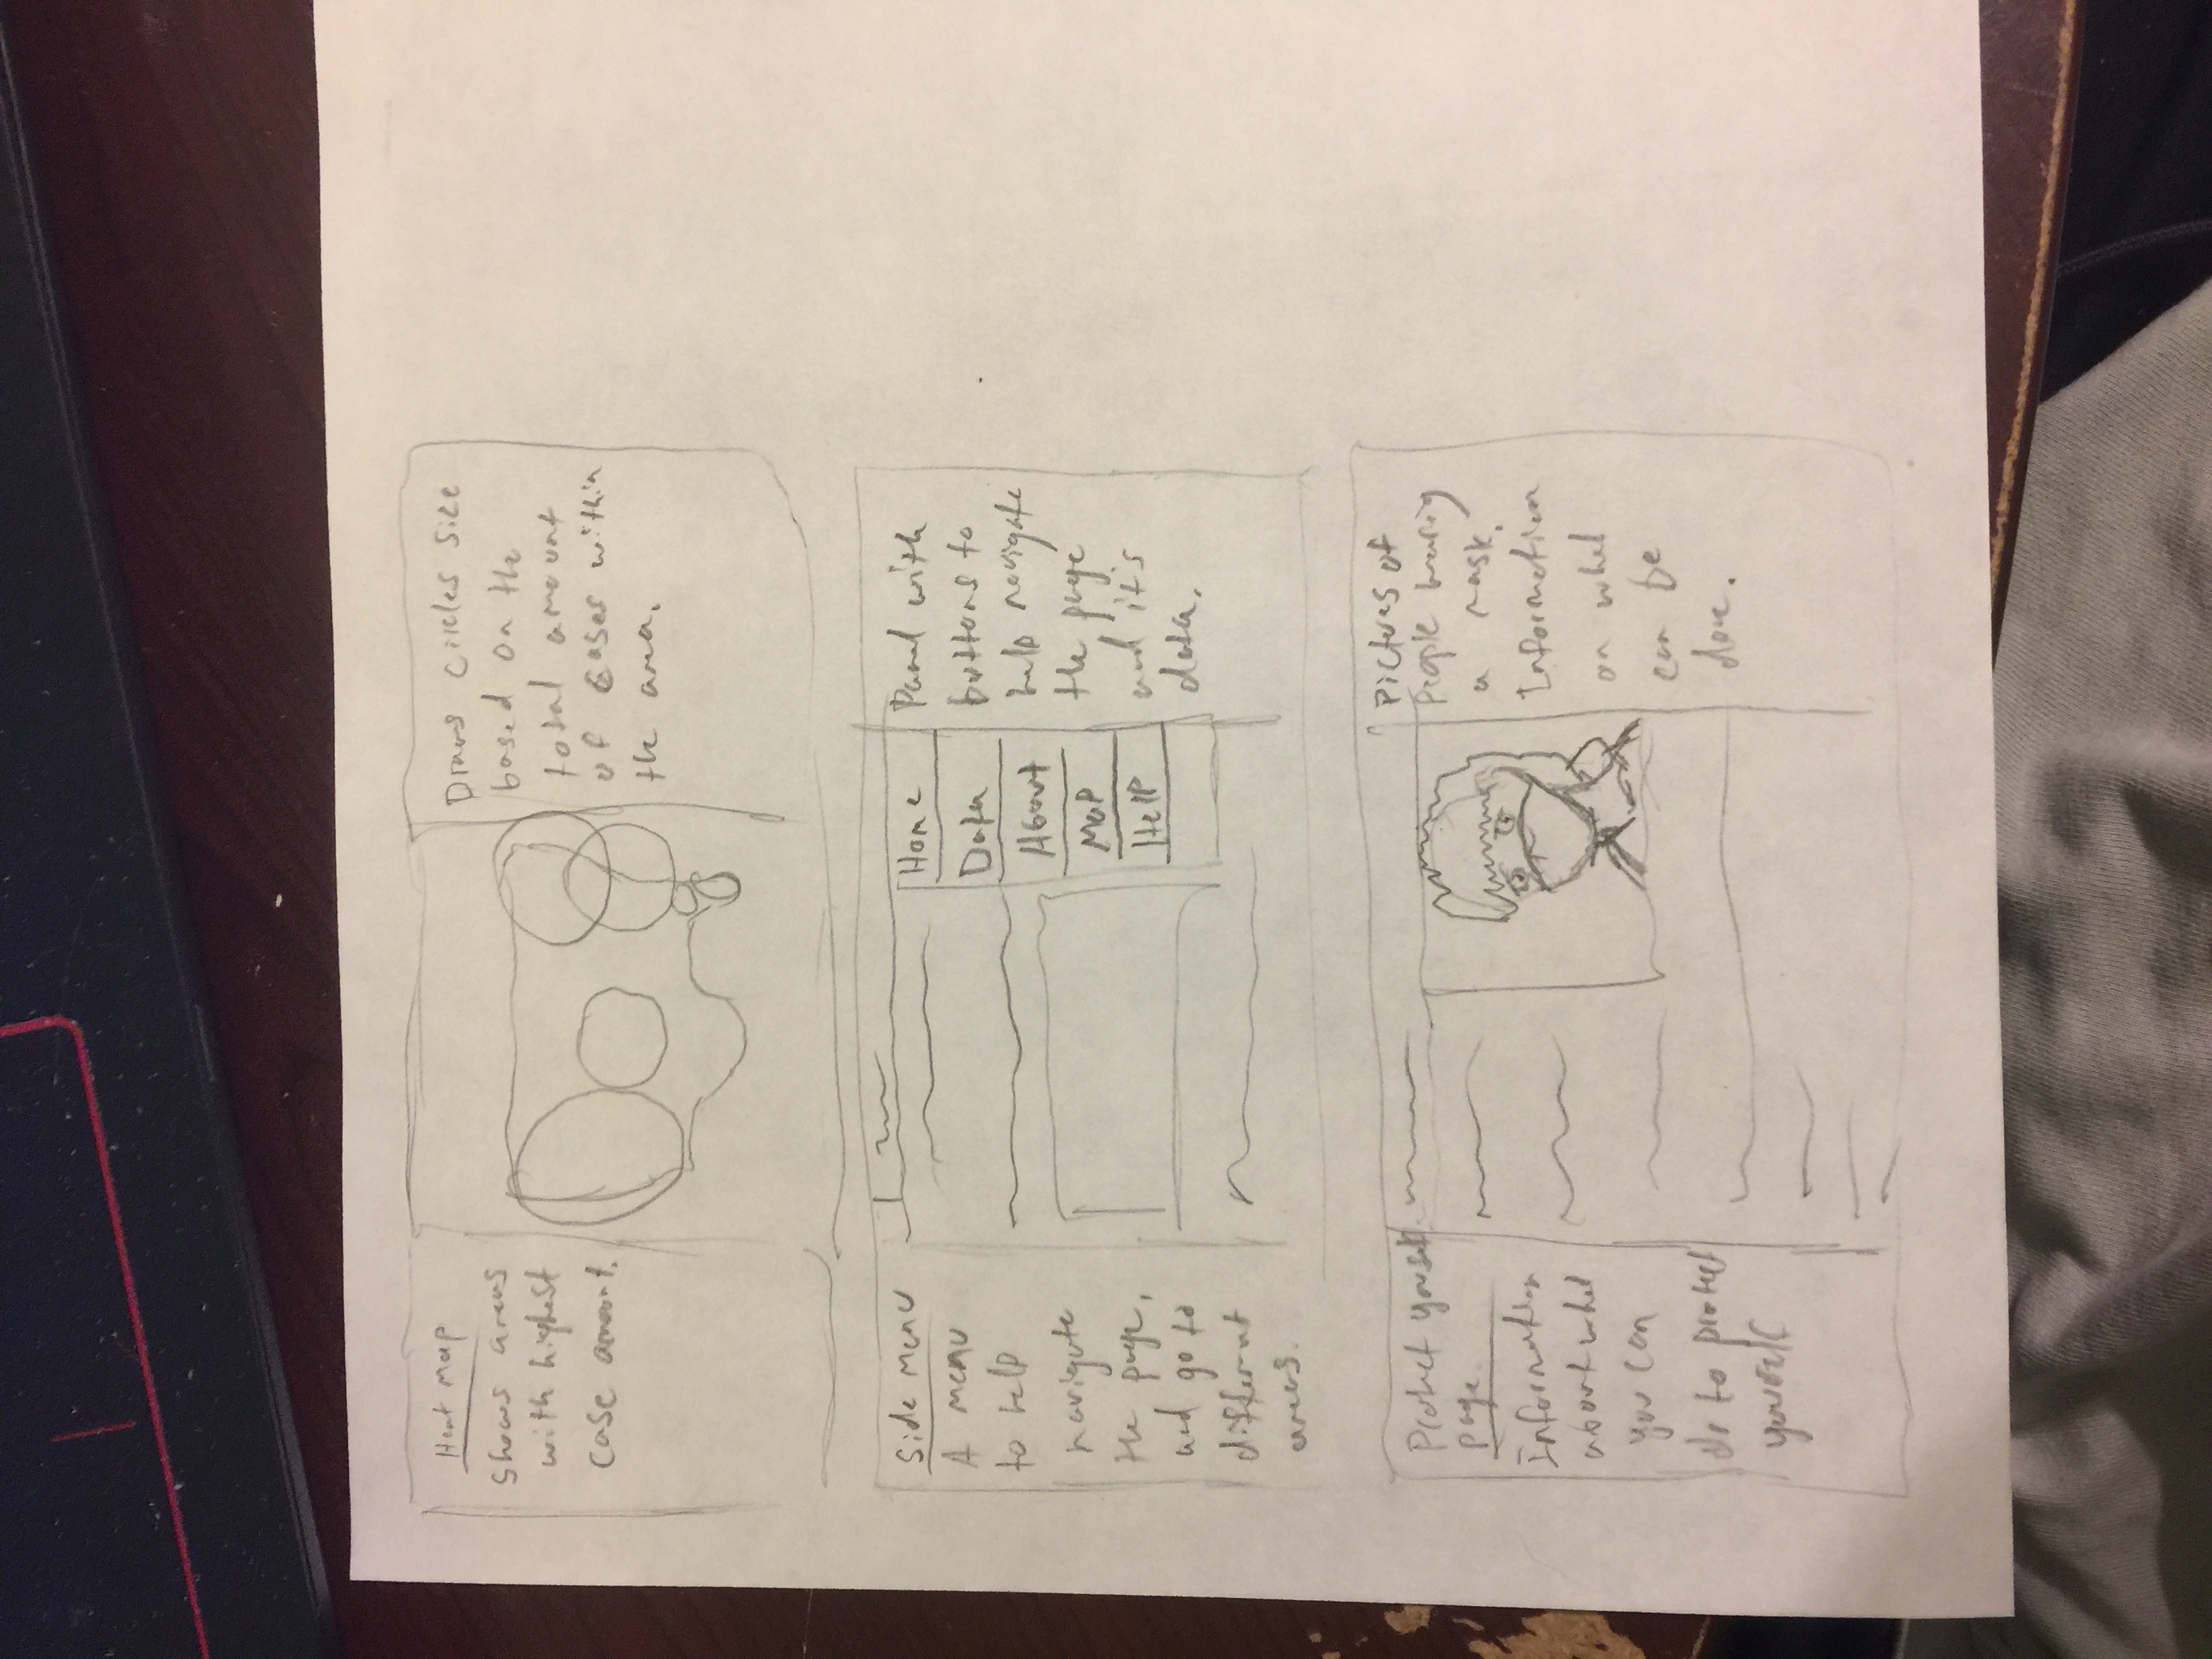 Heat Map
Shows areas
with highest
case amount.
Draws circles size
based on the
total amount
of cases within
the area.
Side menu
A menu
to help
navigate
the page,
and go to
different
areas.
Home
Data
About
Map
Help
Panel with
buttons to
help navigate
the page
and it's
data.
Protect yourself
page
Information
about what
you can
do to protect
yourself
Pictures of
People wearing
a mask.
Information
on what
can be
done.